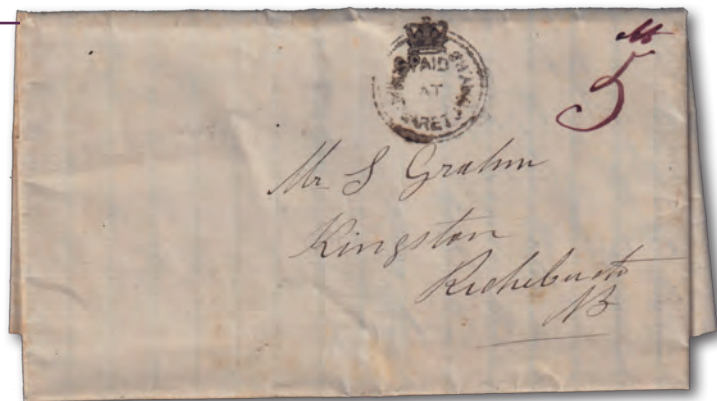 PAID
AT
5
Mr S Grahm
Kingston
Richebucto
NB